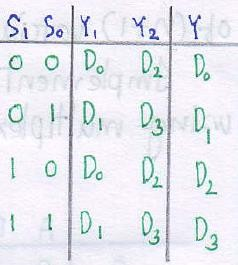 S₁ S₀ Y₁ Y₂ Y
0 0 D₀ D₂ D₀
0 1 D₁ D₃ D₁
1 0 D₀ D₂ D₂
1 1 D₁ D₃ D₃